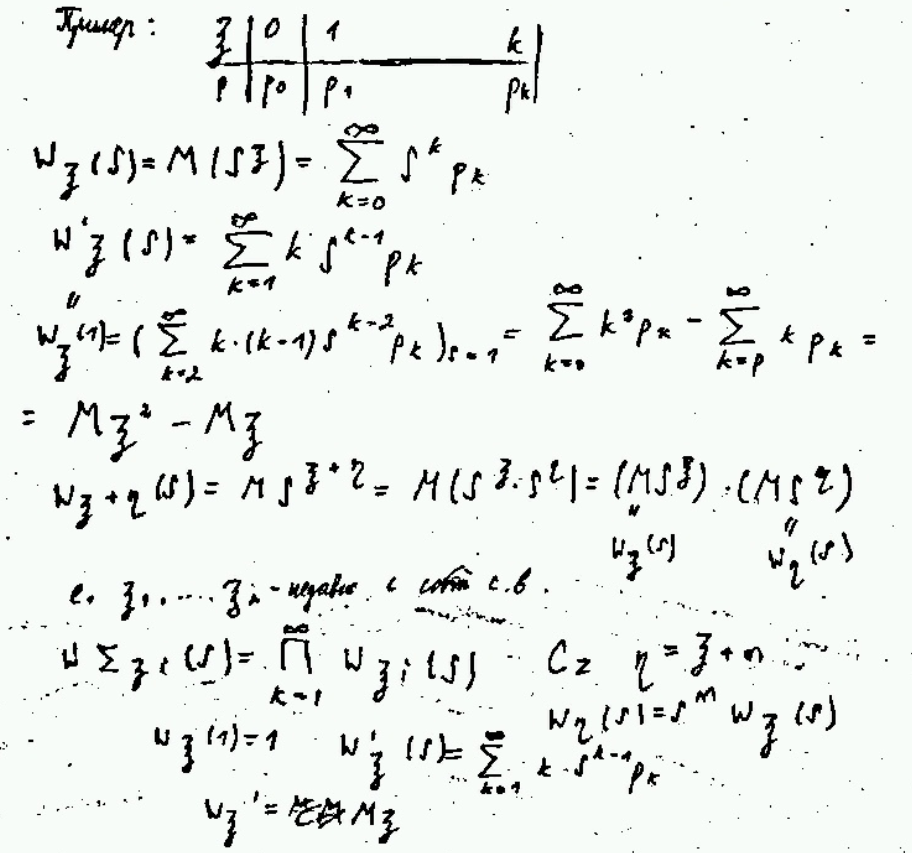 Пример:
ξ | 0 | 1 k |
p | p0 | p1 pk |
W_ξ(S) = M(S^ξ) = ∑_{k=0}^{∞} S^k p_k
W'_ξ(S) = ∑_{k=1}^{∞} k S^{k-1} p_k
W''_ξ(1) = (∑_{k=2}^{∞} k·(k-1) S^{k-2} p_k)_{S=1} = ∑_{k=0}^{∞} k² p_k - ∑_{k=0}^{∞} k p_k =
= Mξ² - Mξ
W_{ξ+η}(S) = M S^{ξ+η} = M(S^ξ · S^η) = (M S^ξ) · (M S^η)
" "
W_ξ(S) W_η(S)
ξ1, .... ξn - незав с.в.
W_{∑ξi}(S) = ∏_{k=1}^{∞} W_{ξi}(S) C2 η = ξ + n
W_η(S) = S^n W_ξ(S)
W_ξ(1) = 1 W'_ξ(S) = ∑_{k=1}^{∞} k·S^{k-1} p_k
W_ξ' = Mξ